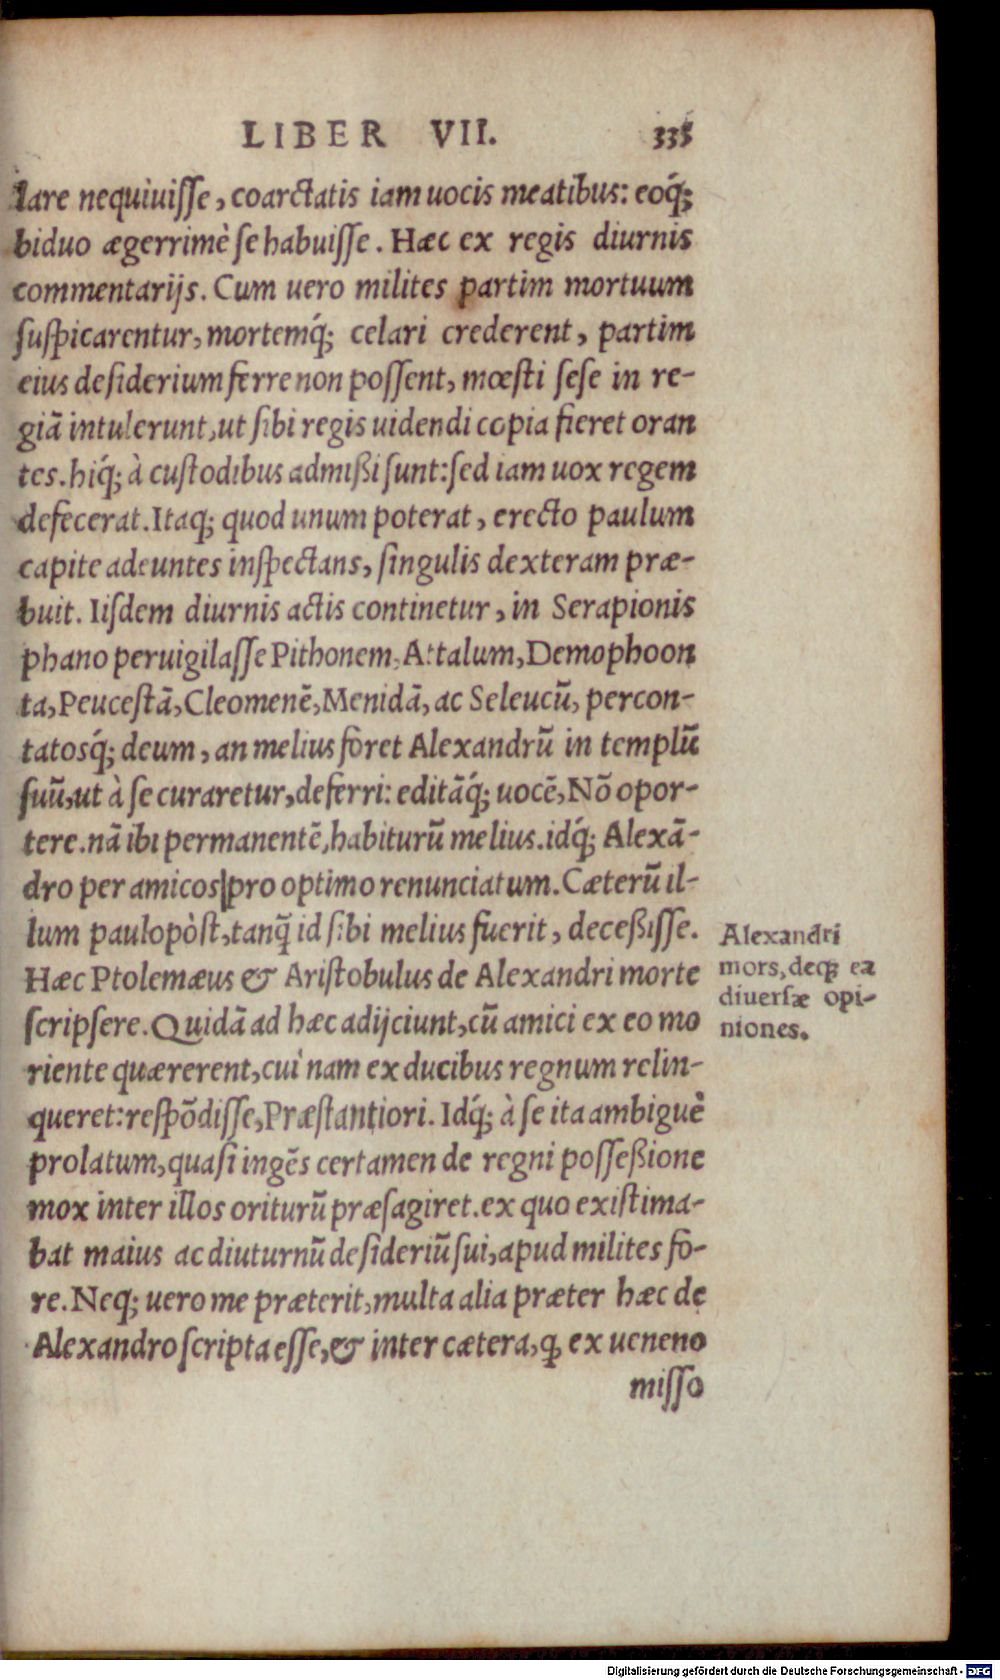 LIBER VII. 335
lare nequiuisse, coarctatis iam uocis meatibus: eoq́;
biduo ægerrimè se habuisse. Hæc ex regis diurnis
commentarijs. Cum uero milites partim mortuum
suspicarentur, mortemq́; celari crederent, partim
eius desiderium ferre non possent, mœsti sese in re-
giã intulerunt, ut sibi regis uidendi copia fieret oran
tes. hiq́; à custodibus admißi sunt: sed iam uox regem
defecerat. Itaq; quod unum poterat, erecto paulum
capite adeuntes inspectans, singulis dexteram præ-
buit. Iisdem diurnis actis continetur, in Serapionis
phano peruigilasse Pithonem, Attalum, Demophoon
ta, Peucestã, Cleomenẽ, Menidã, ac Seleucũ, percon-
tatosq́; deum, an melius foret Alexandrũ in templũ
suũ, ut à se curaretur, deferri: editãq́; uocẽ, Nõ opor-
tere. nã ibi permanentẽ, habiturũ melius. idq́; Alexã-
dro per amicos pro optimo renunciatum. Cæterũ il-
lum paulopòst, tanq̃ id sibi melius fuerit, deceßisse.
Hæc Ptolemæus & Aristobulus de Alexandri morte
scripsere. Quidã ad hæc adijciunt, cũ amici ex eo mo
riente quærerent, cui nam ex ducibus regnum relin-
queret: respõdisse, Præstantiori. Idq́; à se ita ambiguè
prolatum, quasi ingẽs certamen de regni possessione
mox inter illos oriturũ præsagiret. ex quo existima-
bat maius ac diuturnũ desideriũ sui, apud milites fo-
re. Neq; uero me præterit, multa alia præter hæc de
Alexandro scripta esse, & inter cætera, ꝙ ex ueneno
misso
Alexandri
mors, deq; ea
diuersæ opi-
niones.
Digitalisierung gefördert durch die Deutsche Forschungsgemeinschaft - DFG